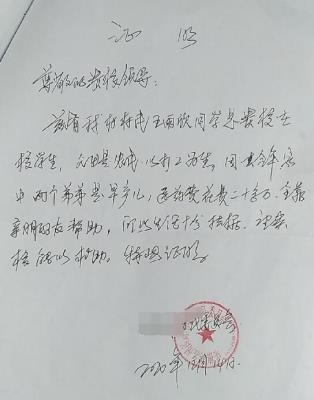 证明
尊敬的贵校领导：
兹有我村村民王雨欣同学系贵校在
校学生，父母是农民以打工为生。因其今年家
中两个弟弟是早产儿，医药费花费二十多万。全靠
亲朋好友帮助，所以生活十分拮据。望贵
校能以帮助。特此证明
村民委员会
2020年 月14日